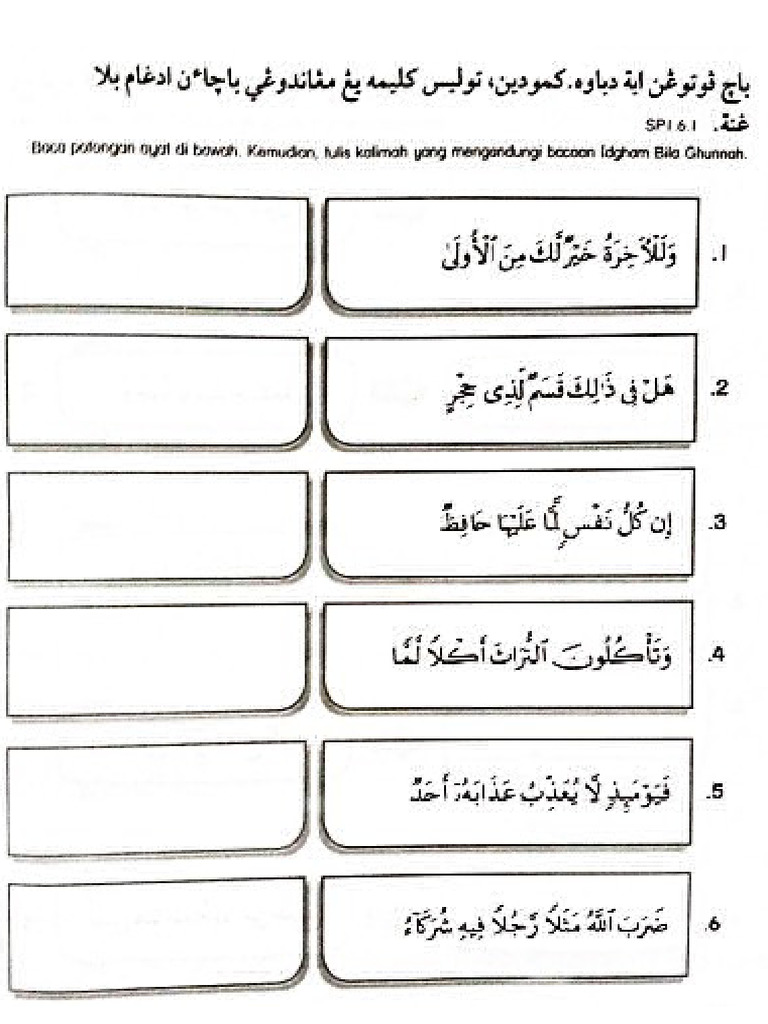 باچ ڤوتوڠن اية دباوه. كمودين، توليس كليمه يڠ مڠاندوڠي باچاءن ادغام بلا
غنة. SP1 6.1
Baca potongan ayat di bawah. Kemudian, tulis kalimah yang mengandungi bacaan Idgham Bila Ghunnah.
1. وَلَلْآخِرَةُ خَيْرٌ لَّكَ مِنَ ٱلْأُولَىٰ
2. هَلْ فِى ذَٰلِكَ قَسَمٌ لِّذِى حِجْرٍ
3. إِن كُلُّ نَفْسٍ لَّمَّا عَلَيْهَا حَافِظٌ
4. وَتَأْكُلُونَ ٱلتُّرَاثَ أَكْلًا لَّمًّا
5. فَيَوْمَئِذٍ لَّا يُعَذِّبُ عَذَابَهُۥٓ أَحَدٌ
6. ضَرَبَ ٱللَّهُ مَثَلًا رَّجُلًا فِيهِ شُرَكَآءُ